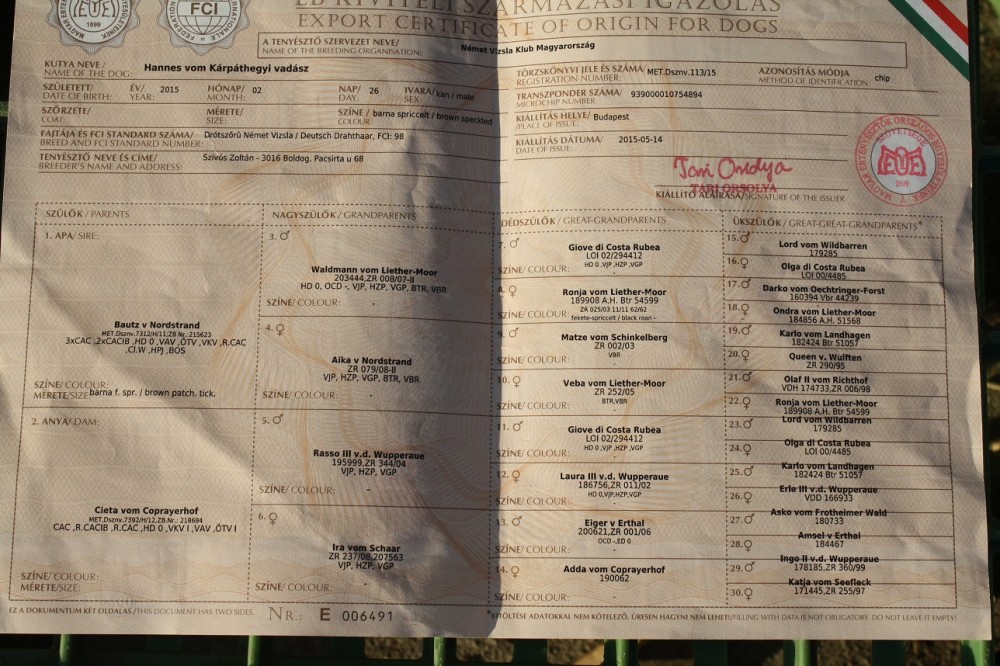 EB KIVITELI SZÁRMAZÁSI IGAZOLÁS
EXPORT CERTIFICATE OF ORIGIN FOR DOGS
1899
FCI
A TENYÉSZTŐ SZERVEZET NEVE/ Német Vizsla Klub Magyarország
NAME OF THE BREEDING ORGANISATION:
KUTYA NEVE / Hannes vom Kárpáthegyi vadász
NAME OF THE DOG:
SZÜLETETT/ ÉV/ 2015 HÓNAP/ 02 NAP/ 26 IVARA/ kan / male
DATE OF BIRTH: YEAR: MONTH: DAY: SEX:
SZŐRZETE/ MÉRETE/ SZÍNE / barna spriccelt / brown speckled
COAT: SIZE: COLOUR
FAJTÁJA ÉS FCI STANDARD SZÁMA/ Drótszőrű Német Vizsla / Deutsch Drahthaar, FCI: 98
BREED AND FCI STANDARD NUMBER:
TENYÉSZTŐ NEVE ÉS CÍME/ Szívós Zoltán - 3016 Boldog, Pacsirta u 68
BREEDER'S NAME AND ADDRESS:
TÖRZSKÖNYVI JELE ÉS SZÁMA/ MET.Dsznv.113/15 AZONOSÍTÁS MÓDJA
REGISTRATION NUMBER: METHOD OF IDENTIFICATION chip
TRANSZPONDER SZÁMA/ 939000010754894
MICROCHIP NUMBER
KIÁLLÍTÁS HELYE/ Budapest
/PLACE OF ISSUE:
KIÁLLÍTÁS DÁTUMA/ 2015-05-14
DATE OF ISSUE:
Tari Orsolya
TARI ORSOLYA
KIÁLLÍTÓ ALÁÍRÁSA/SIGNATURE OF THE ISSUER
MAGYAR EBTENYÉSZTŐK ORSZÁGOS EGYESÜLETEINEK SZÖVETSÉGE
1899
SZÜLŐK / PARENTS
1. APA/ SIRE:
Bautz v Nordstrand
MET.Dsznv.7312/H/11;ZB.Nr.:215623
3xCAC ,2xCACIB ,HD 0 ,VAV ,ÖTV ,VKV ,R.CAC
,Cl.W ,HPJ ,BOS
SZÍNE/ COLOUR:
MÉRETE/SIZE: barna f. spr. / brown patch. tick.
2. ANYA/DAM:
Cleta vom Coprayerhof
MET.Dsznv.7392/H/12,ZB.Nr.: 218694
CAC ,R.CACIB ,R.CAC ,HD 0 ,VKV I ,VAV ,ÖTV I
SZÍNE/ COLOUR:
MÉRETE/SIZE:
NAGYSZÜLŐK /GRANDPARENTS
3. ♂
Waldmann vom Liether-Moor
203444,ZR 008/07-II
HD 0, OCD -, VJP, HZP, VGP, BTR, VBR
SZÍNE/ COLOUR: -
4. ♀
Aika v Nordstrand
ZR 079/08-II
VJP, HZP, VGP, BTR, VBR
SZÍNE/ COLOUR: -
5. ♂
Rasso III v.d. Wupperaue
195999,ZR 344/04
VJP, HZP, VGP
SZÍNE/ COLOUR: -
6. ♀
Ira vom Schaar
ZR 237/08,207563
VJP, HZP, VGP
SZÍNE/ COLOUR: -
DÉDSZÜLŐK /GREAT-GRANDPARENTS
7. ♂ Giove di Costa Rubea
LOI 02/294412
HD 0 ,VJP ,HZP ,VGP
SZÍNE/ COLOUR: -
8. ♀ Ronja vom Liether-Moor
189908 A.H. Btr 54599
ZR 025/03 11/11 62/62
SZÍNE/ COLOUR: fekete-spriccelt / black roan -
9. ♂ Matze vom Schinkelberg
ZR 002/03
VBR
SZÍNE/ COLOUR: -
10. ♀ Veba vom Liether-Moor
ZR 252/05
BTR,VBR
SZÍNE/ COLOUR: -
11. ♂ Giove di Costa Rubea
LOI 02/294412
HD 0 ,VJP ,HZP ,VGP
SZÍNE/ COLOUR: -
12. ♀ Laura III v.d. Wupperaue
186756,ZR 011/02
HD 0,VJP,HZP,VGP
SZÍNE/ COLOUR: -
13. ♂ Eiger v Erthal
200621,ZR 001/06
OCD -,ED 0
SZÍNE/ COLOUR: -
14. ♀ Adda vom Coprayerhof
190062
SZÍNE/ COLOUR: -
ÜKSZÜLŐK / GREAT-GREAT-GRANDPARENTS*
15. ♂ Lord vom Wildbarren
179285
16. ♀ Olga di Costa Rubea
LOI 00/4485
17. ♂ Darko vom Oechtringer-Forst
160394 Vbr 44239
18. ♀ Ondra vom Liether-Moor
184856 A.H. 51568
19. ♂ Karlo vom Landhagen
182424 Btr 51057
20. ♀ Queen v. Wulften
ZR 290/95
21. ♂ Olaf II vom Richthof
VDH 174733,ZR 006/98
22. ♀ Ronja vom Liether-Moor
189908 A.H. Btr 54599
23. ♂ Lord vom Wildbarren
179285
24. ♀ Olga di Costa Rubea
LOI 00/4485
25. ♂ Karlo vom Landhagen
182424 Btr 51057
26. ♀ Erle III v.d. Wupperaue
VDD 166933
27. ♂ Asko vom Frotheimer Wald
180733
28. ♀ Amsel v Erthal
184467
29. ♂ Ingo II v.d. Wupperaue
178185,ZR 360/99
30. ♀ Katja vom Seefleck
171445,ZR 255/97
EZ A DOKUMENTUM KÉT OLDALAS./THIS DOCUMENT HAS TWO SIDES. Nr.: E 006491 *KITÖLTÉSE ADATOKKAL NEM KÖTELEZŐ. ÜRESEN HAGYNI NEM LEHET/FILLING WITH DATA IS NOT OBLIGATORY. DO NOT LEAVE IT EMPTY!